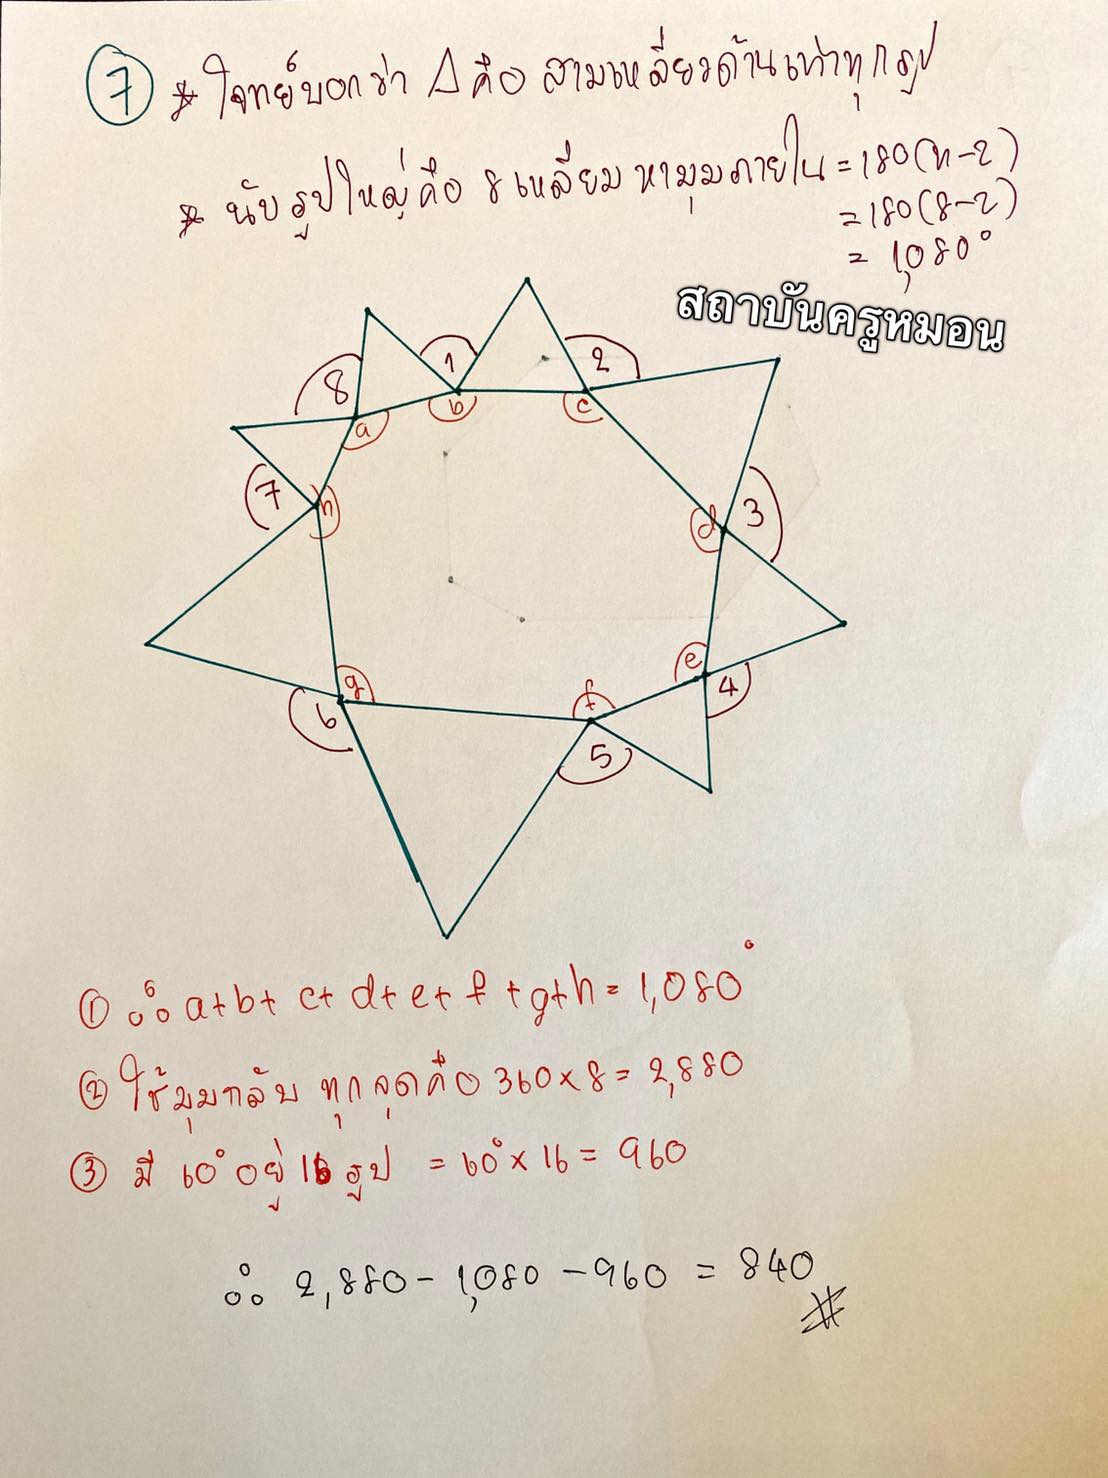 7 * โจทย์บอกว่า Δ คือ สามเหลี่ยมด้านเท่าทุกรูป
* นับรูปใหญ่คือ 8 เหลี่ยม หามุมภายใน = 180(n-2)
= 180(8-2)
= 1,080°
สถาบันครูหมอน
1
2
8
b
c
a
7
h
d
3
e
4
g
f
6
5
① ∴ a+b+c+d+e+f+g+h = 1,080°
② ใช้มุมกลับ ทุกจุดคือ 360×8 = 2,880
③ มี 60° อยู่ 16 รูป = 60°×16 = 960
∴ 2,880 - 1,080 - 960 = 840 #